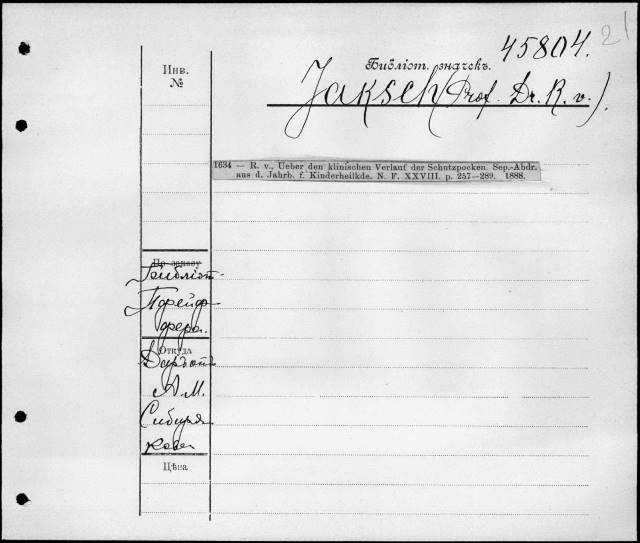 21
45804.
Инв.
№
Библіот. значекъ.
Jaksch (Prof. Dr. R. v.).
1634 — R. v., Ueber den klinischen Verlauf der Schutzpocken. Sep.-Abdr.
aus d. Jahrb. f. Kinderheilkde. N. F. XXVIII. p. 257—289. 1888.
По заказу
Библіот.
Пфейф-
фера.
Откуда
Даръ отъ
А. М.
Сибиря-
кова
Цѣна